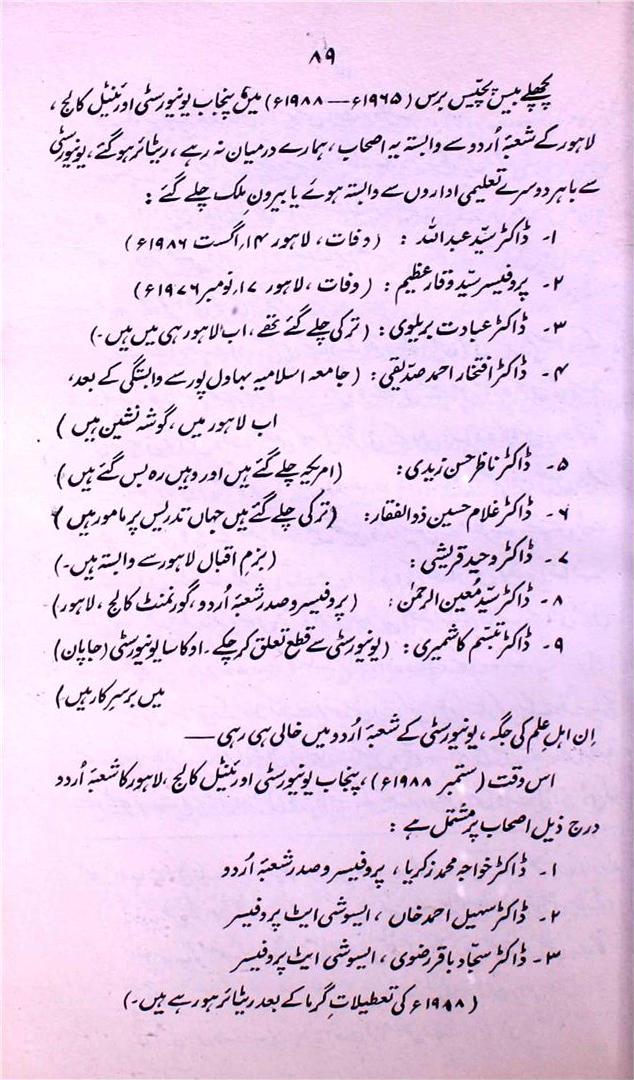 ۸۹
پچھلے بیس پچیّس برس (۱۹۶۵ء — ۱۹۸۸ء) میں پنجاب یونیورسٹی اورئینٹیل کالج ،
لاہور کے شعبۂ اُردو سے وابستہ یہ اصحاب ، ہمارے درمیان نہ رہے ، ریٹائر ہو گئے ، یونیورسٹی
سے باہر دوسرے تعلیمی اداروں سے وابستہ ہوئے یا بیرونِ ملک چلے گئے :
۱۔ ڈاکٹر سیّد عبداللہ : (وفات ، لاہور ۱۴؍ اگست ۱۹۸۶ء)
۲۔ پروفیسر سیّد وقار عظیم : (وفات ، لاہور ۱۷؍ نومبر ۱۹۷۶ء)
۳۔ ڈاکٹر عبادت بریلوی : (ترکی چلے گئے تھے ، اب لاہور ہی میں ہیں۔)
۴۔ ڈاکٹر افتخار احمد صدّیقی : (جامعہ اسلامیہ بہاول پور سے وابستگی کے بعد ،
اب لاہور میں ، گوشہ نشین ہیں)
۵۔ ڈاکٹر ناظر حسن زیدی : (امریکہ چلے گئے ہیں اور وہیں رہ بس گئے ہیں)
۶۔ ڈاکٹر غلام حسین ذوالفقار : (ترکی چلے گئے ہیں جہاں تدریس پر مامور ہیں)
۷۔ ڈاکٹر وحید قریشی : (بزمِ اقبال لاہور سے وابستہ ہیں۔)
۸۔ ڈاکٹر سیّد مُعین الرحمٰن : (پروفیسر و صدر شعبۂ اُردو ، گورنمنٹ کالج ، لاہور)
۹۔ ڈاکٹر تبسّم کاشمیری : (یونیورسٹی سے قطع تعلق کر چکے۔ اوکاسا یونیورسٹی (جاپان)
میں برسرِ کار ہیں)
اِن اہلِ علم کی جگہ ، یونیورسٹی کے شعبۂ اُردو میں خالی ہی رہی —
اس وقت (ستمبر ۱۹۸۸ء) ، پنجاب یونیورسٹی اورئینٹیل کالج ، لاہور کا شعبۂ اُردو
درج ذیل اصحاب پر مشتمل ہے :
۱۔ ڈاکٹر خواجہ محمد زکریا ، پروفیسر و صدر شعبۂ اُردو
۲۔ ڈاکٹر سہیل احمد خاں ، ایسوشی ایٹ پروفیسر
۳۔ ڈاکٹر سجّاد باقر رضوی ، ایسوشی ایٹ پروفیسر
(۱۹۸۸ء کی تعطیلاتِ گرما کے بعد ریٹائر ہو رہے ہیں۔)